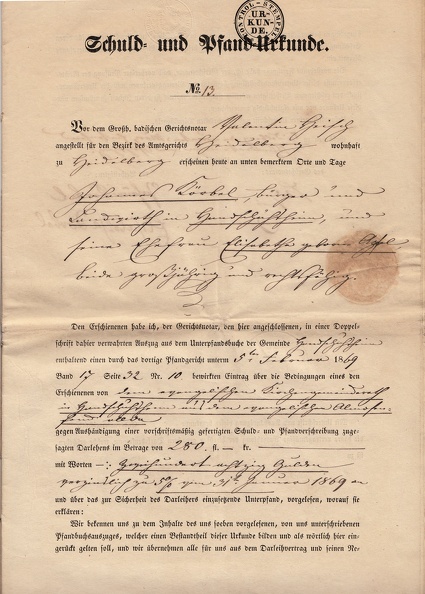 CONTROL-STEMPEL
UR-
KUN-
DE.
Schuld- und Pfand-Urkunde.
No. 13.
Vor dem Großh. badischen Gerichtsnotar Valentin
angestellt für den Bezirk des Amtsgerichts Heidelberg wohnhaft
zu Heidelberg erscheinen heute an unten bemerktem Orte und Tage
Johannes Körbel, Bürger und
Landwirth in Handschuhsheim, und
seine Ehefrau Elisabetha geborne
beide großjährig und rechtsfähig.
Den Erschienenen habe ich, der Gerichtsnotar, den hier angeschlossenen, in einer Doppel-
schrift dahier verwahrten Auszug aus dem Unterpfandsbuche der Gemeinde Handschuhsheim
enthaltend einen durch das dortige Pfandgericht unterm 5ten Februar 1869
Band 17 Seite 32 Nr. 10 bewirkten Eintrag über die Bedingungen eines den
Erschienenen von dem evangelischen Kirchengemeinderath
in Handschuhsheim aus dem evangelischen Almosen-
fond
gegen Aushändigung einer vorschriftsmäßig gefertigten Schuld- und Pfandverschreibung zuge-
sagten Darlehens im Betrage von 280 fl. — kr.
mit Worten —: Zweihundert achtzig Gulden
verzinslich zu 5% vom 31. Januar 1869 an
und über das zur Sicherheit des Darleihers einzusetzende Unterpfand, vorgelesen, worauf sie
erklären:
Wir bekennen uns zu dem Inhalte des uns soeben vorgelesenen, von uns unterschriebenen
Pfandbuchsauszuges, welcher einen Bestandtheil dieser Urkunde bilden und als wörtlich hier ein-
gerückt gelten soll, und wir übernehmen alle für uns aus dem Darleihvertrag und seinen Ne-